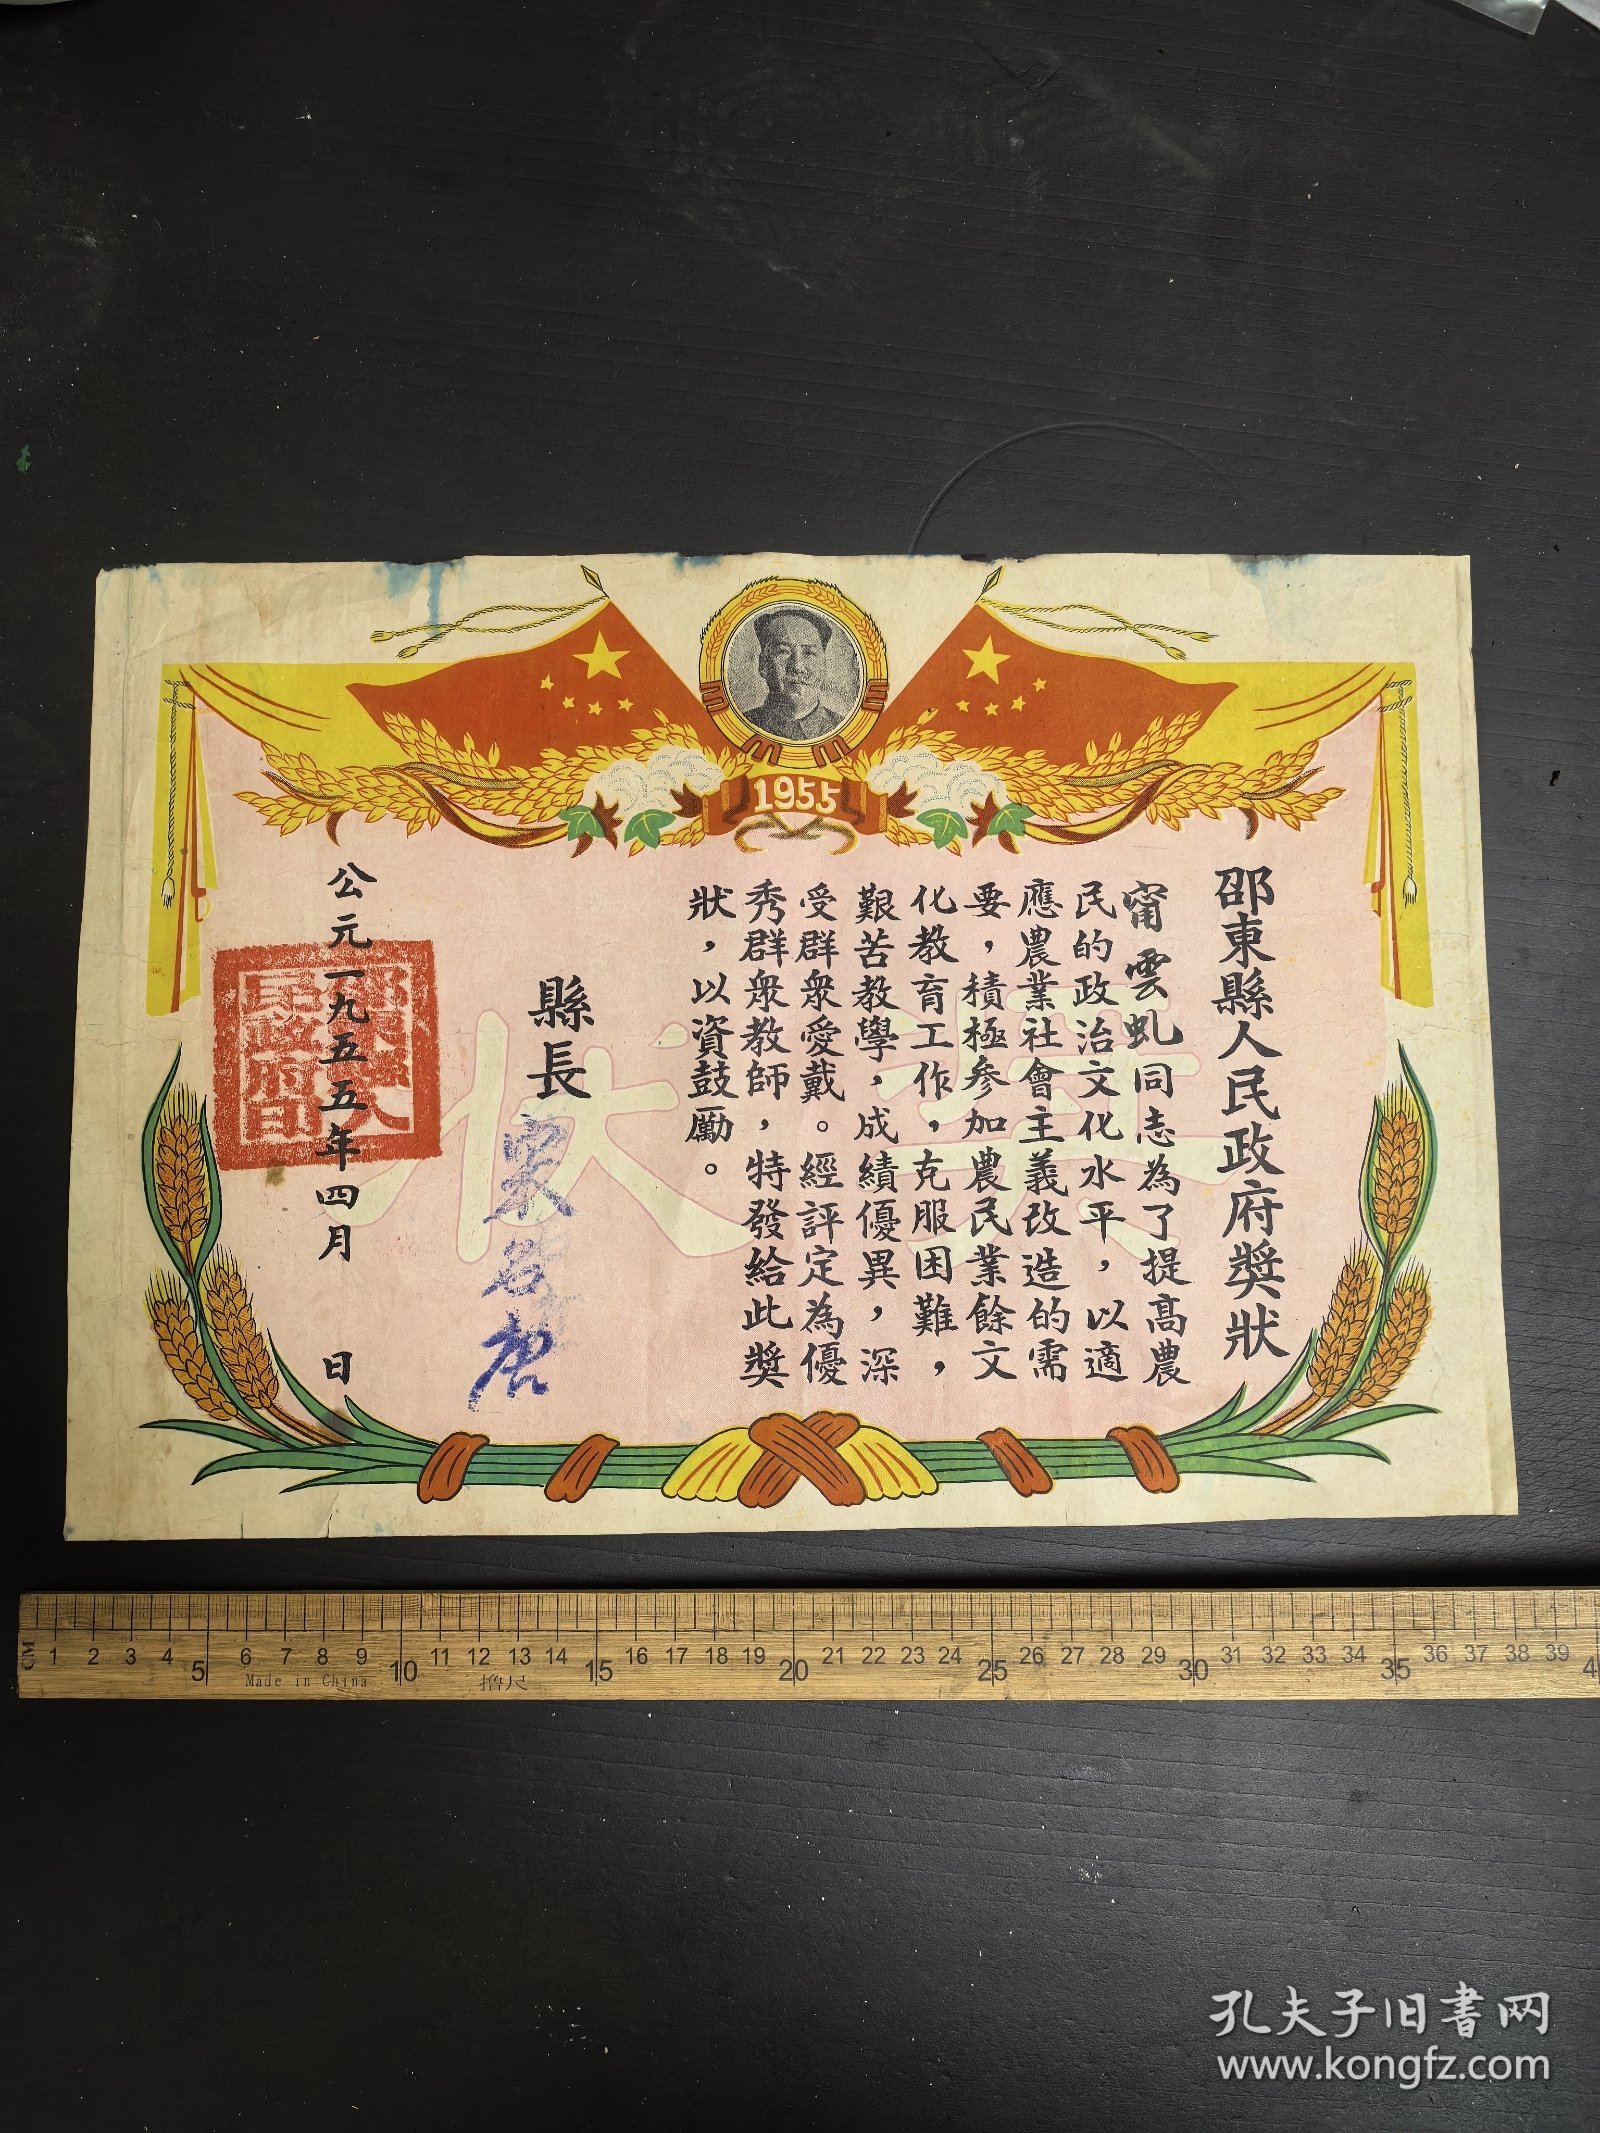 1955
獎狀
邵東縣人民政府獎狀
甯雲虬同志為了提高農
民的政治文化水平，以適
應農業社會主義改造的需
要，積極參加農民業餘文
化教育工作，克服困難，
艱苦教學，成績優異，深
受群衆愛戴。經評定為優
秀群衆教師，特發給此獎
狀，以資鼓勵。
縣長
公元一九五五年四月 日
邵東縣人民政府印
CM 1 2 3 4 5 6 7 8 9 10 11 12 13 14 15 16 17 18 19 20 21 22 23 24 25 26 27 28 29 30 31 32 33 34 35 36 37 38 39 4
Made in China
孔夫子旧書网
www.kongfz.com